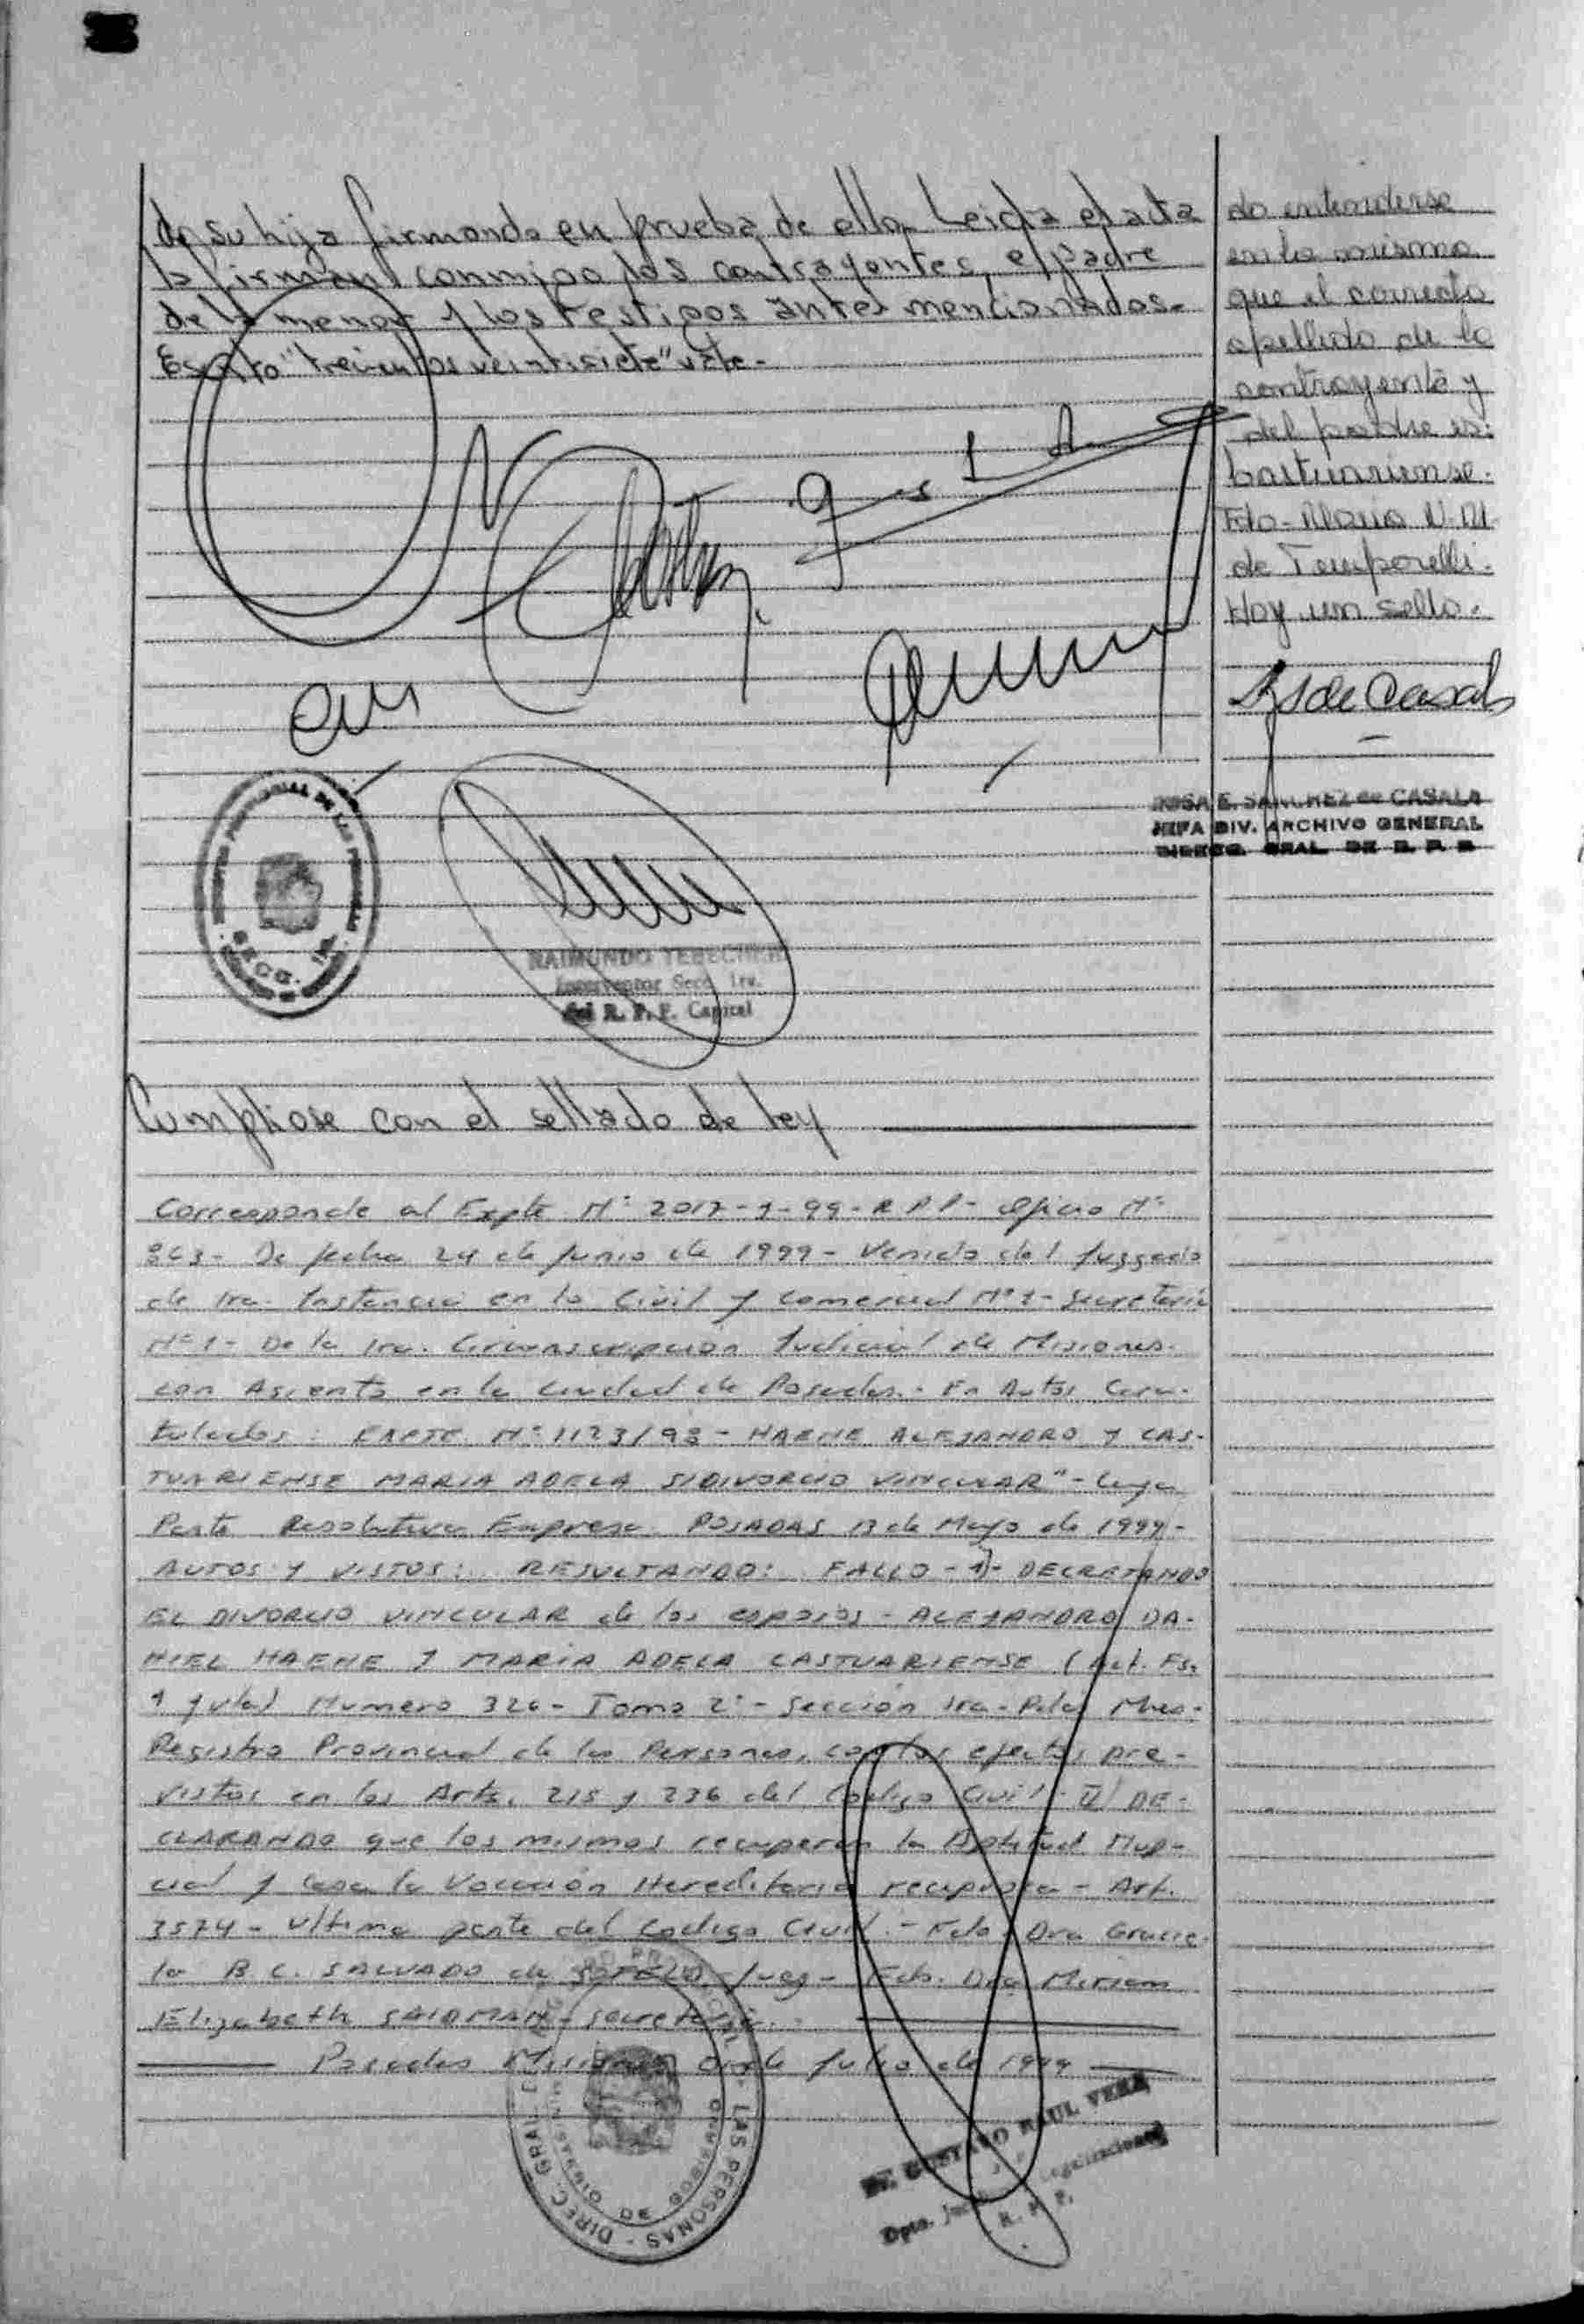 de su hija firmando en prueba de ello. Leida el acta
la firman conmigo los contrayentes, el padre
de la menor y los testigos antes mencionados.-
Escrito "trecientos veintisiete" vale.-
do entenderse
en la misma
que el correcto
apellido de la
contrayente y
del padre es:
Castuariense.
Fdo- Maria N. M.
de Temporelli.
Hay un sello.-
S. de Casala
ROSA E. SANCHEZ de CASALA
JEFA DIV. ARCHIVO GENERAL
DIRECC. GRAL. DE R. P. P.
SECC. 1ra.
RAIMUNDO TEBECHERI
Secc. 1ra.
del R. P. P. Capital
Cumpliose con el sellado de ley
Corresponde al Expte Nº 2017-1-99-R P P- Oficio Nº
863- De fecha 24 de Junio de 1999- Venido del Juzgado
de 1ra. Instancia en lo Civil y Comercial Nº 1- Secretaria
Nº 1- De la 1ra. Circunscripción Judicial de Misiones.
con Asiento en la Ciudad de Posadas.- En Autos Cara-
tulados: EXPTE Nº 1123/98- HAENE ALEJANDRO Y CAS-
TUARIENSE MARIA ADELA S/DIVORCIO VINCULAR"- Cuya
Parte Resolutiva Expresa. POSADAS 13 de Mayo de 1999-
AUTOS Y VISTOS: RESULTANDO: FALLO - 1)- DECRETANDO
EL DIVORCIO VINCULAR de los esposos - ALEJANDRO DA-
NIEL HAENE Y MARIA ADELA CASTUARIENSE (Act. Fs.
1 y vta) Numero 326- Tomo 2º- Sección 1ra- Pdas Mnes-
Registro Provincial de las Personas, con los efectos pre-
vistos en los Arts. 215 y 236 del Codigo Civil- II) DE-
CLARANDO que los mismos recuperan la Aptitud Nup-
cial y cesa la Vocación Hereditaria reciproca- Art.
3574- Ultima parte del Codigo Civil.- Fdo. Dra Gracie-
la B C. SALVADO de SOTELO- Juez- Fdo. Dra Miriam
Elizabeth SALOMAN- Secretaria.
Posadas Misiones de Julio de 1999
DIREC. GRAL. DEL REGISTRO PROVINCIAL DE LAS PERSONAS
GUSTAVO RAUL VERA
Dpto.
R. P. P.